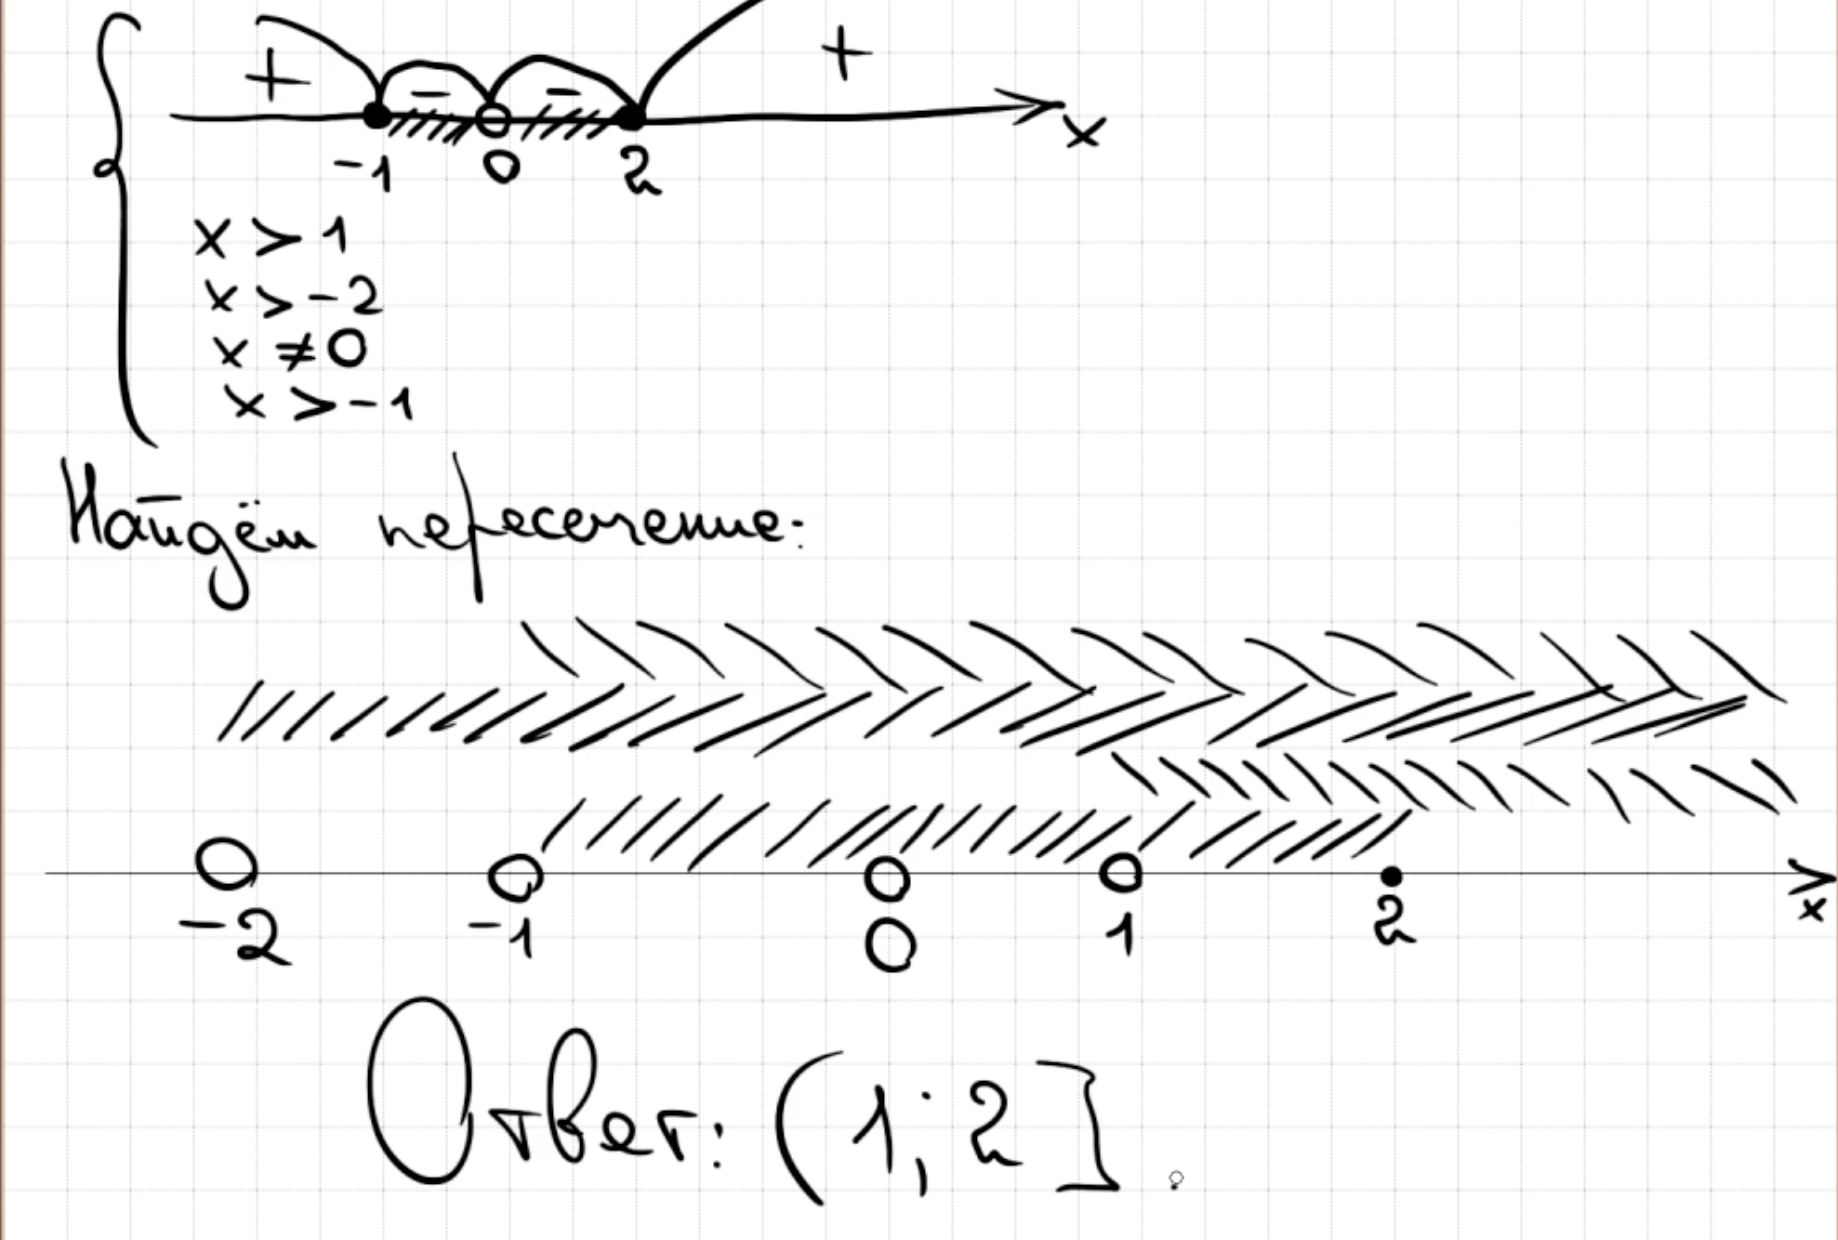 + - - +
-1 0 2 x
x > 1
x > -2
x ≠ 0
x > -1
Найдём пересечение:
-2 -1 0 1 2 x
Ответ: (1; 2].